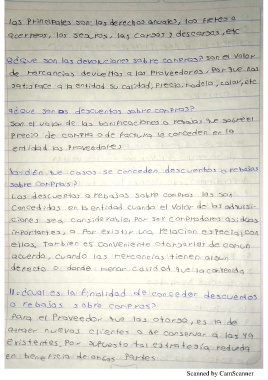 Los principales son: los derechos anuales, los fletes a
acarreos, los seguros, las cargas y descargas, etc
¿Que son las devoluciones sobre compras? son el valor
de mercancias devueltas a los proveedores, Por que nos
satisface a la entidad su calidad, Precio, modelo, color, etc
¿Que son los descuentos sobre compras?
Son el valor de las bonificaciones o rebajas que sobre el
Precio de compra o de factura le conceden en la
entidad los Proveedores
casos se conceden descuentos o rebajas
sobre compras?
Los descuentos o rebajas sobre compras les son
concedidas en la entidad cuando el valor de las adquisi-
ciones sea considerable. Por ser compradores asiduos
importantes, o Por existir una relacion especial con
ellos. Tambien es conveniente otorgarles de comun
acuerdo, cuando las mercancias tienen algun
defecto o
11. ¿cual es la Finalidad de conceder descuentos
o rebajas sobre compras?
Para el Proveedor que los otorga, es la de
atraer nuevos clientes o de conservar a los ya
existentes, Por supuesto tal estrategia redunda
en beneficio de ambas Partes.
Scanned by CamScanner